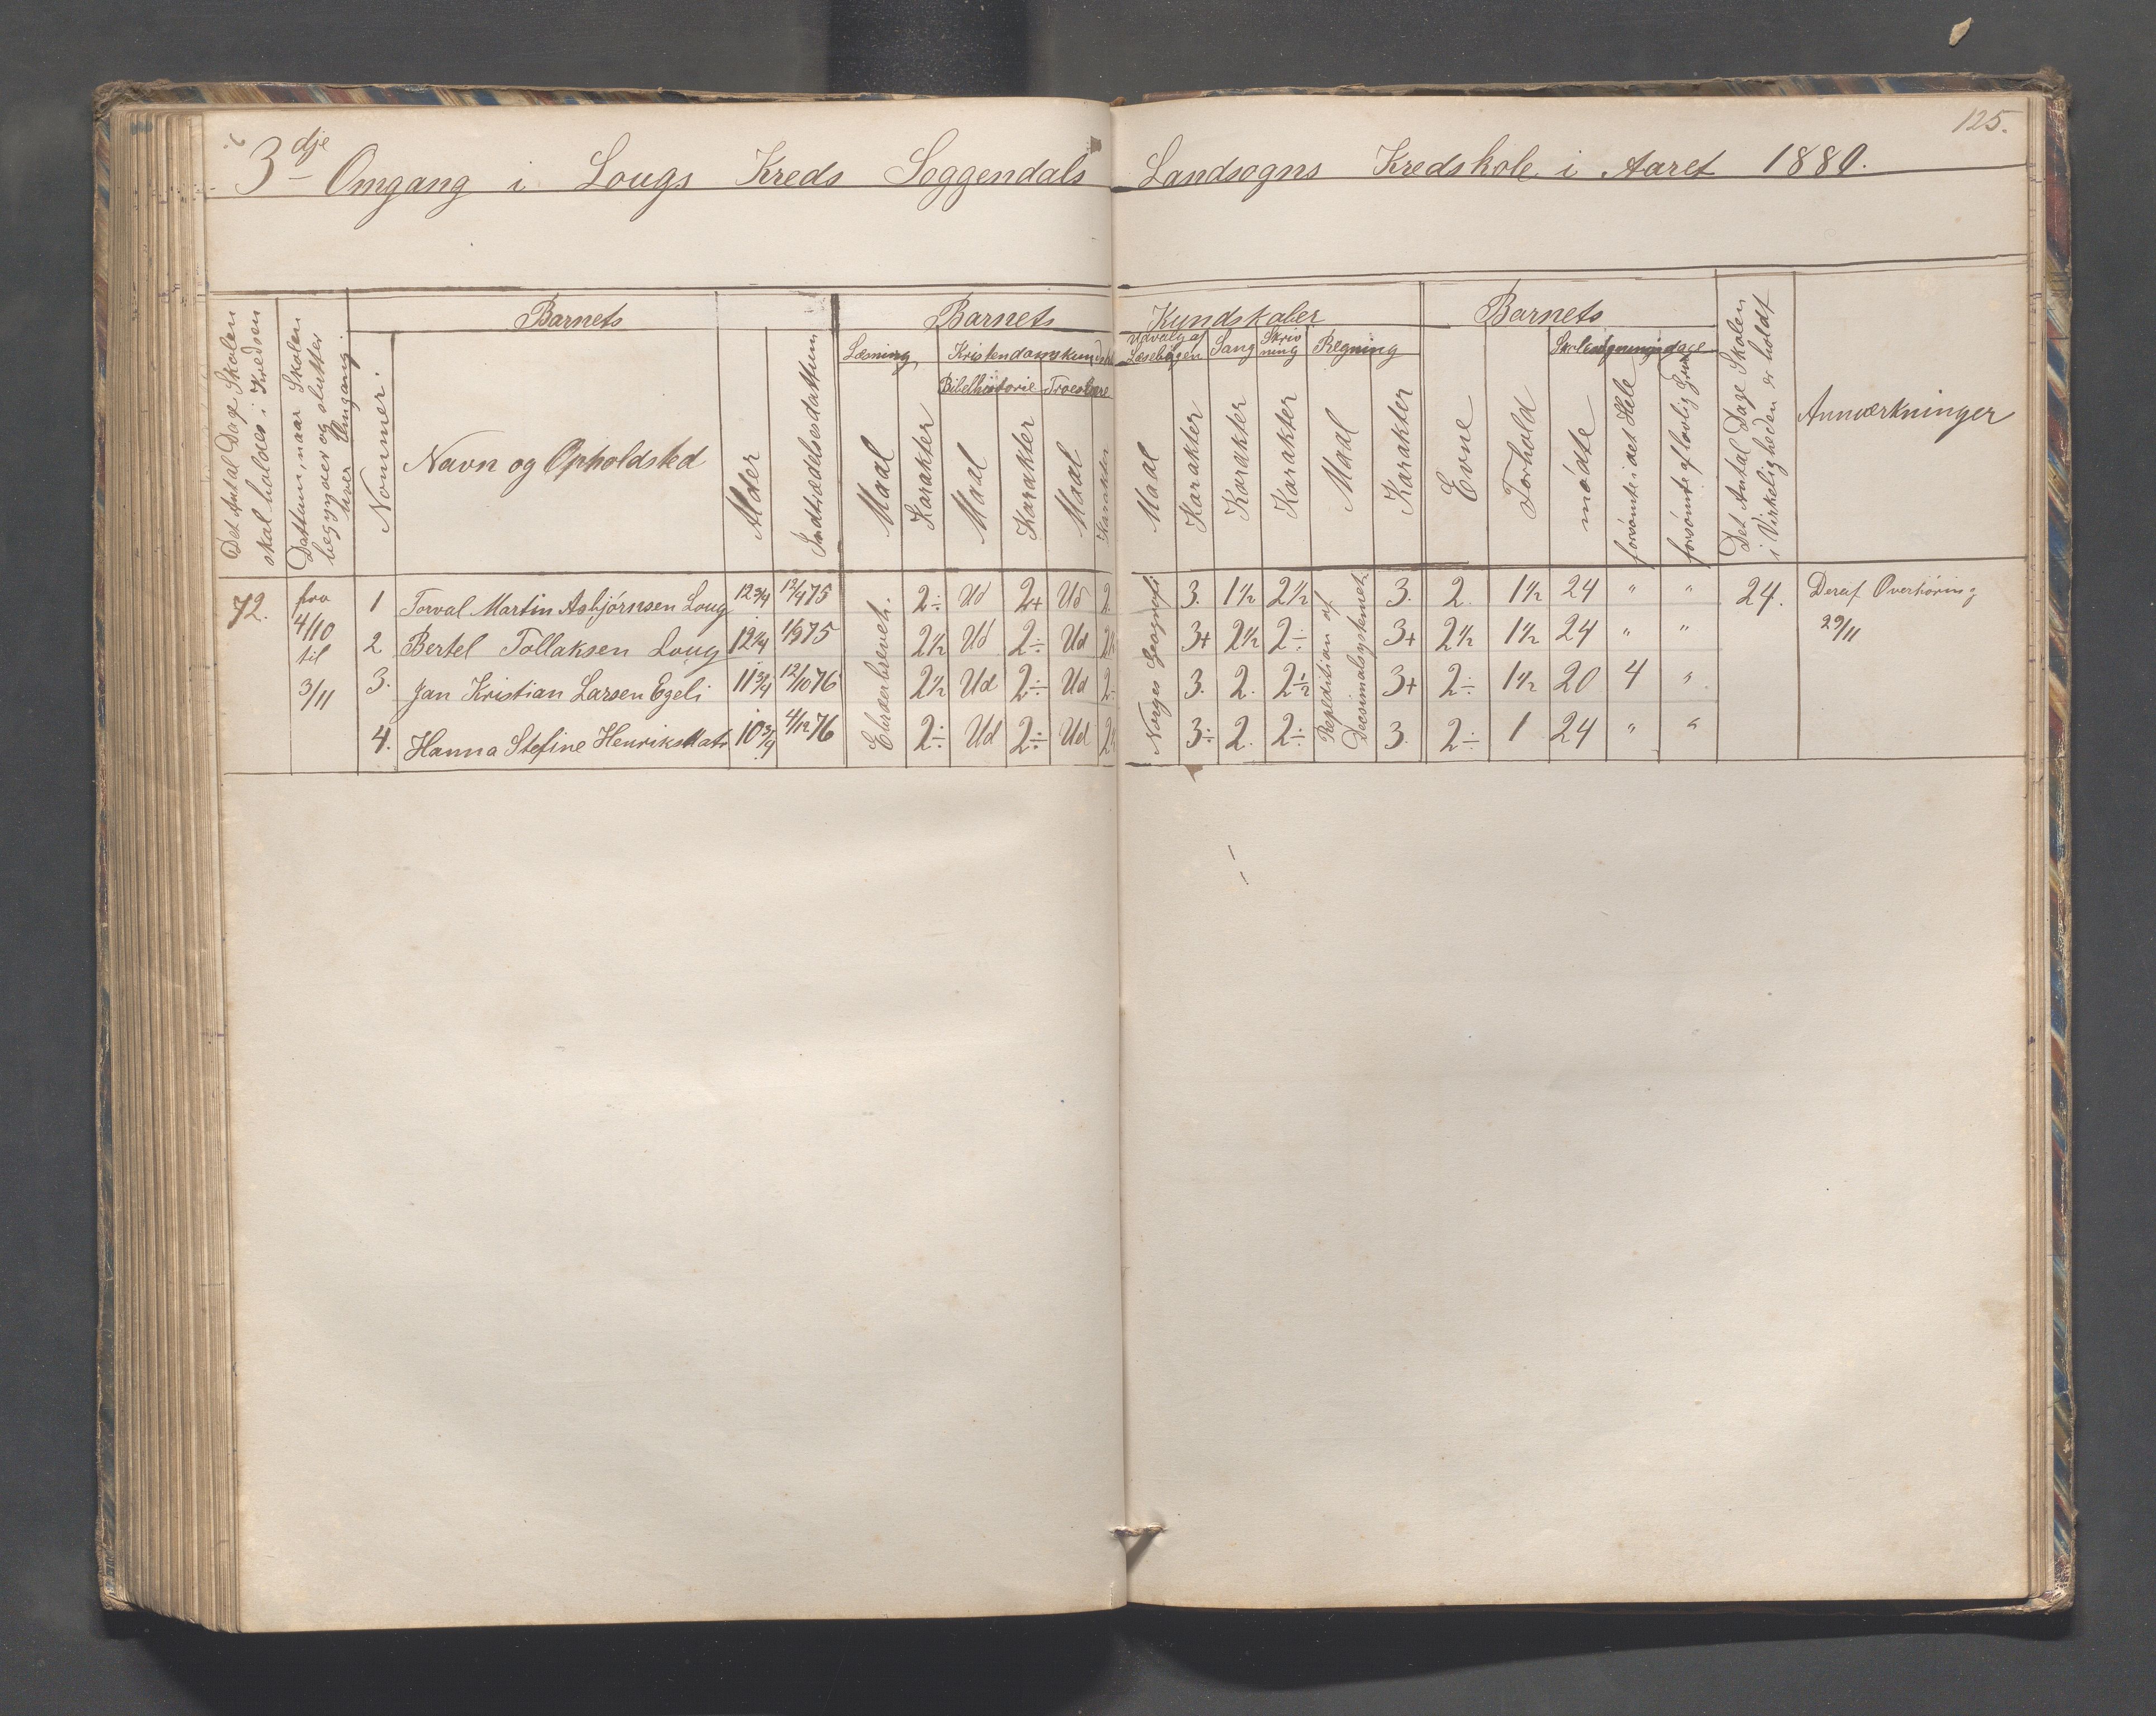 125.
3dje Omgang i Lougs Kreds Soggendals Landsogns Kredskole i Aaret 1880.
Det Antal Dage Skolen skal holdes i Kredsen
Dattum, naar Skolen begynder og slutter hver Omgang.
Nommer.
Barnets
Navn og Opholdsted
Alder
Indtrædelsesdattum
Barnets Kundskaber
Læsning,
Maal
Karakter
Kristendomskundskab
Bibelhistorie
Maal
Karakter
Troeslære
Maal
Karakter
Udvalg af Læsebogen
Maal
Karakter
Sang
Karakter
Skrivning
Karakter
Regning
Maal
Karakter
Barnets
Evne
Forhold
Skolesøgningsdage
mødte
forsømte i det Hele
forsømte af lovlig Grund
Det Antal Dage Skolen i Virkeligheden er holdt
Anmærkninger
72.
fra 4/10 til 3/11
Norges Geografi
Repedition af Decimalsystemet.
1 Torval Martin Asbjørnsen Loug 12 3/4 12/4 75 2÷ Ud 2+ Ud 2. 3. 1 1/2 2 1/2 3. 2. 1 1/2 24 " " 24. Deraf Overhøring 29/11
2 Bertel Tollaksen Loug 12 1/4 1/9 75 2 1/2 Ud 2÷ Ud 2 1/2 3+ 2 1/2 2÷ 3+ 2 1/2 1 1/2 24 " "
3. Jan Kristian Larsen Egeli 11 3/4 12/10 76 2 1/2 Ud 2÷ Ud 2÷ 3. 2. 2 1/2 3+ 2÷ 1 1/2 20 4 "
4. Hanna Stefine Henriksdatr 10 3/4 4/12 76 2÷ Ud 2÷ Ud 3÷ 2. 2÷ 3. 2÷ 1 24 " "